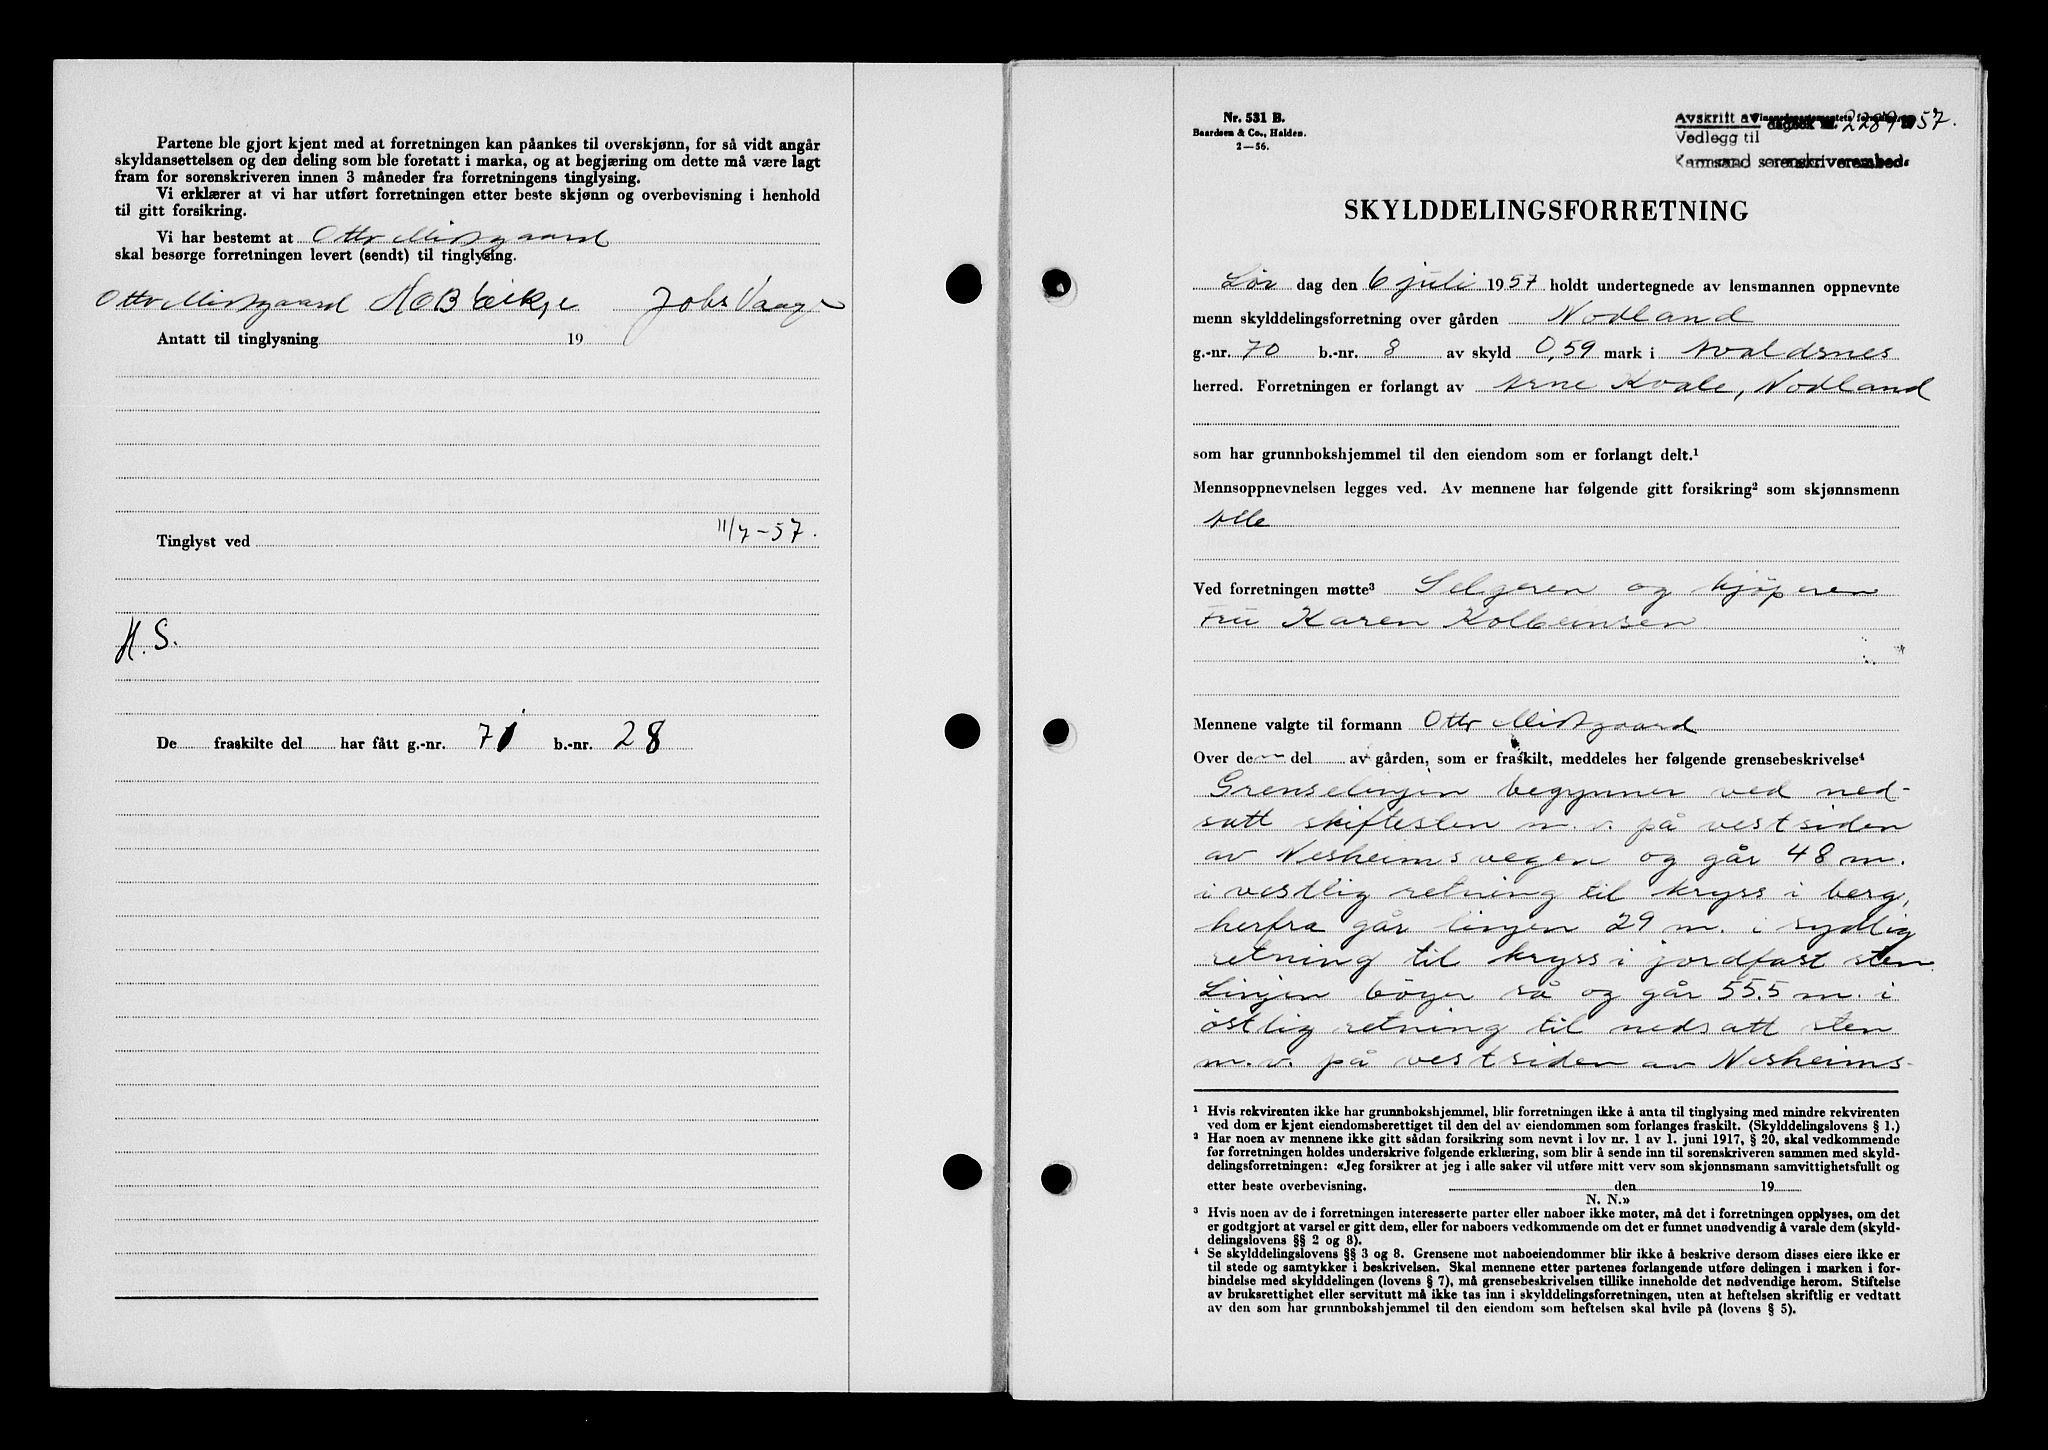 Partene ble gjort kjent med at forretningen kan påankes til overskjønn, for så vidt angår
skyldansettelsen og den deling som ble foretatt i marka, og at begjæring om dette må være lagt
fram for sorenskriveren innen 3 måneder fra forretningens tinglysing.
Vi erklærer at vi har utført forretningen etter beste skjønn og overbevisning i henhold
til gitt forsikring.
Vi har bestemt at Otto Midtgaard
skal besørge forretningen levert (sendt) til tinglysing.
Otto Midtgaard Jobs Vaage
Antatt til tinglysning 19
Tinglyst ved 11/7-57.
H.S.
De fraskilte del har fått g.-nr. 71 b.-nr. 28
Nr. 531 B.
Baardsen & Co., Halden.
2—56.
Avskrift av dagbok nr. 2289 1957.
Vedlegg til
Karmsund sorenskriverembede
SKYLDDELINGSFORRETNING
Lør dag den 6 juli 1957 holdt undertegnede av lensmannen oppnevnte
menn skylddelingsforretning over gården Nodland
g.-nr. 70 b.-nr. 8 av skyld 0,59 mark i Avaldsnes
herred. Forretningen er forlangt av Arne Kvale, Nodland
som har grunnbokshjemmel til den eiendom som er forlangt delt.¹
Mennsoppnevnelsen legges ved. Av mennene har følgende gitt forsikring² som skjønnsmenn
Alle
Ved forretningen møtte³ Selgeren og kjøperen
Fru Karen Kolbeinsen
Mennene valgte til formann Otto Midtgaard
Over de n del av gården, som er fraskilt, meddeles her følgende grensebeskrivelse⁴
Grenselinjen begynner ved ned-
satt skiftesten m.v. på vestsiden
av Nesheimsvegen og går 48 m.
i vestlig retning til kryss i berg,
herfra går linjen 29 m. i sydlig
retning til kryss i jordfast sten
Linjen bøyer så og går 55.5 m. i
østlig retning til nedsatt sten
m.v. på vestsiden av Nesheims-
¹ Hvis rekvirenten ikke har grunnbokshjemmel, blir forretningen ikke å anta til tinglysing med mindre rekvirenten
ved dom er kjent eiendomsberettiget til den del av eiendommen som forlanges fraskilt. (Skylddelingslovens § 1.)
² Har noen av mennene ikke gitt sådan forsikring som nevnt i lov nr. 1 av 1. juni 1917, § 20, skal vedkommende
før forretningen holdes underskrive følgende erklæring, som blir å sende inn til sorenskriveren sammen med skyld-
delingsforretningen: «Jeg forsikrer at jeg i alle saker vil utføre mitt verv som skjønnsmann samvittighetsfullt og
etter beste overbevisning. den 19
N. N.»
³ Hvis noen av de i forretningen interesserte parter eller naboer ikke møter, må det i forretningen opplyses, om det
er godtgjort at varsel er gitt dem, eller for naboers vedkommende om det er funnet unødvendig å varsle dem (skyld-
delingslovens §§ 2 og 8).
⁴ Se skylddelingslovens §§ 3 og 8. Grensene mot naboeiendommer blir ikke å beskrive dersom disses eiere ikke er
til stede og samtykker i beskrivelsen. Skal mennene etter partenes forlangende utføre delingen i marken i for-
bindelse med skylddelingen (lovens § 7), må grensebeskrivelsen tillike inneholde det nødvendige herom. Stiftelse
av bruksrettighet eller servitutt må ikke tas inn i skylddelingsforretningen, uten at heftelsen skriftlig er vedtatt
av den som har grunnbokshjemmel til den eiendom som heftelsen skal hvile på (lovens § 5).